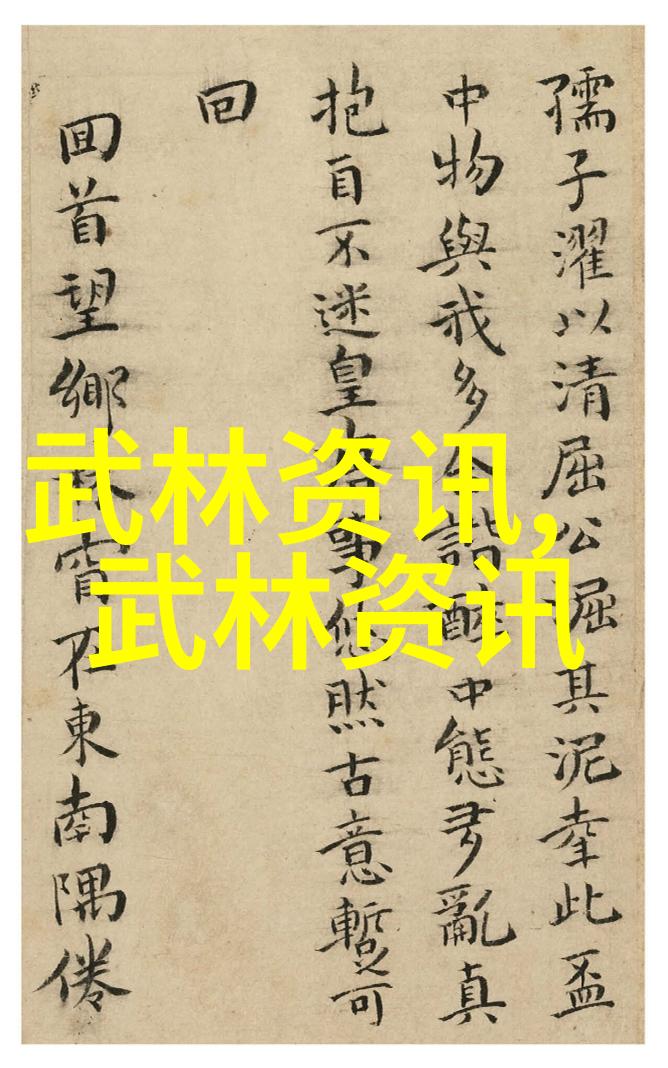 孺子濯以清屈公淈其泥幸此盃
中物與我多合諧醉中態多亂真
抱自不迷皇事悠然古意暫可
回
回首望鄉宵在東南隅倦
武林资讯,
武林资讯